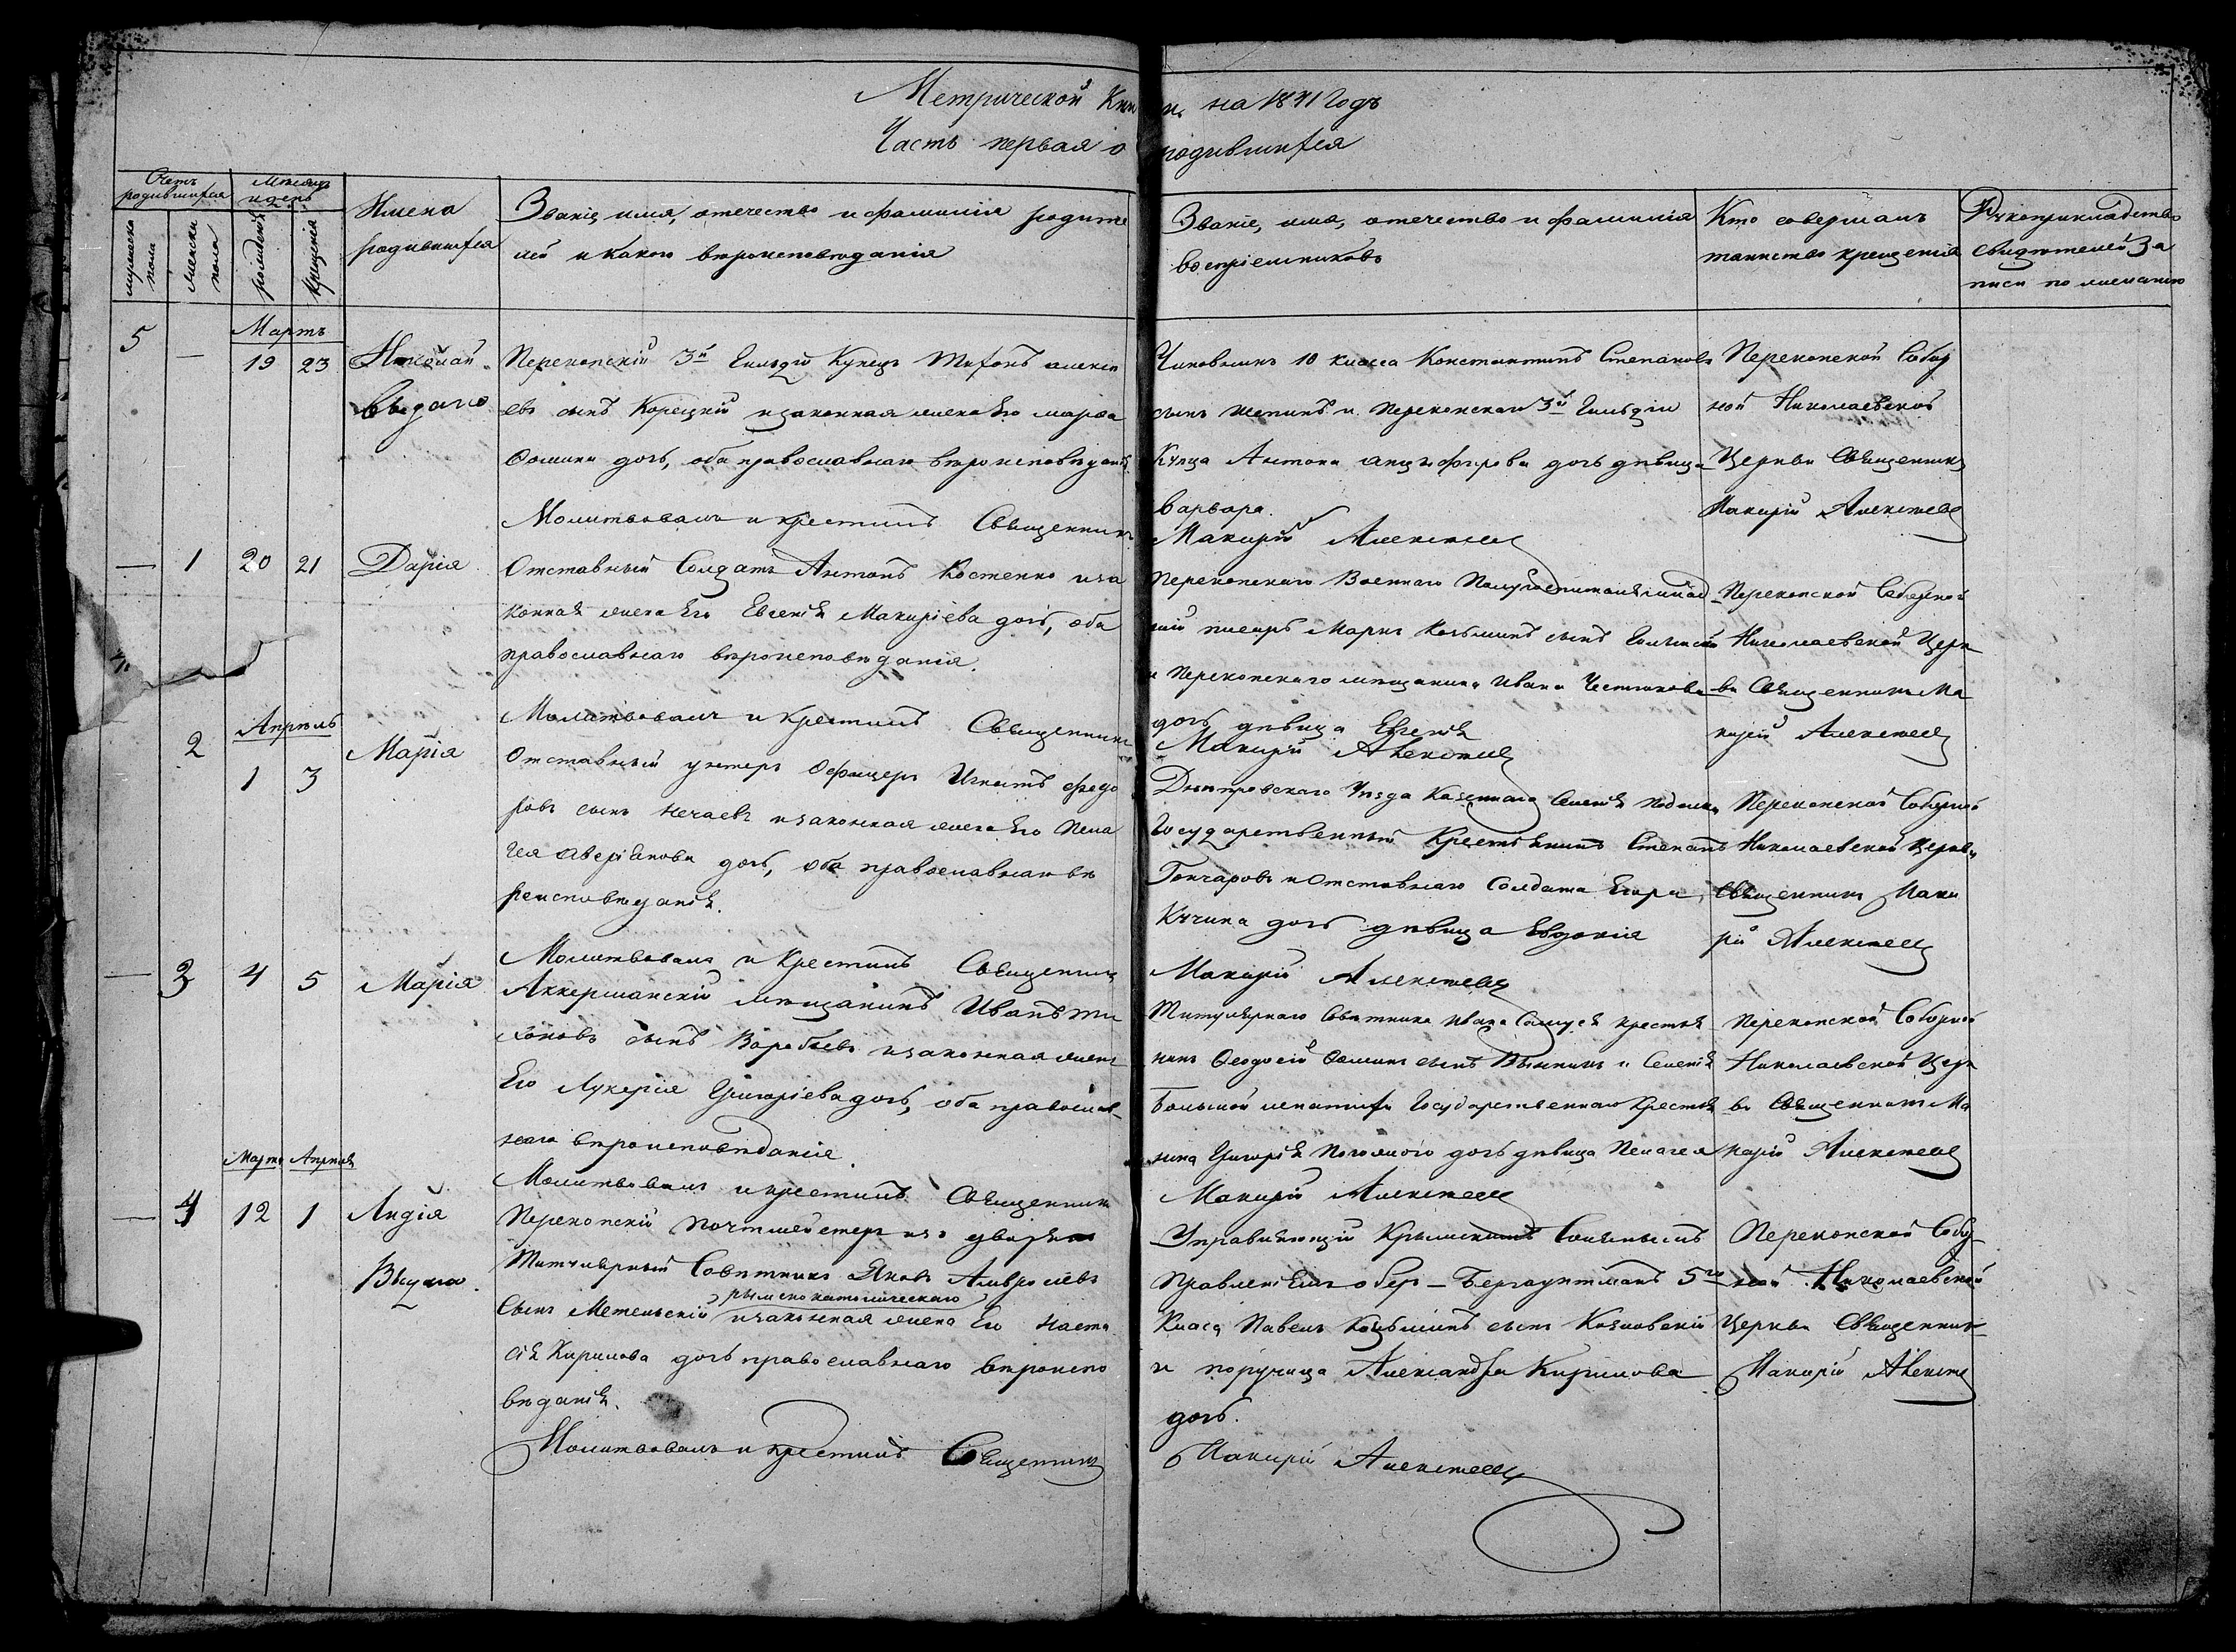 Метрической Книги на 1841 Годъ
Часть первая о родившихся
Счетъ родившихся
Мѣсяцъ и день
мужеска пола
женска пола
рожденія
крещенія
Имена родившихся
Званіе имя, отечество и фамилія родите
лей и какого вѣроисповѣданія
Званіе, имя, отечество и фамилія
воспріемниковъ
Кто совершалъ
таинство крещенія
Рукоприкладство
свидѣтелей За
писи по желанію
5 —
Мартъ
19 23
Николай
Выдано
Перекопскій 3й Гильдіи Купецъ Тихонъ алексѣ
евъ сынъ Корецкій и законная жена Его марѳа
Ѳомина дочь, оба православнаго вѣроисповѣданія
Молитвовалъ и крестилъ Священникъ
Чиновникъ 10 класса Константинъ Степановъ
сынъ и Перекопскаго 3й Гильдіи
Купца Антона дочь дѣвица
Варвара.
Макарій Алексѣевъ
Перекопской Собор
ной Николаевской
Церкви Священникъ
Макарій Алексѣевъ
— 1 20 21
Дарія
Отставный Солдатъ Антонъ Костенко и за
конная жена Его Евгенія Макаріева дочь, оба
православнаго вѣроисповѣданія.
Молитвовалъ и крестилъ Священникъ
Перекопскаго Военнаго Полугоспиталя млад
шій писарь Маркъ Козьминъ сынъ
и Перекопскаго мѣщанина Ивана Честнокова
дочь дѣвица Евгенія
Макарій Алексѣевъ
Перекопской Соборной
Николаевской Церк
ви Священникъ Ма
карій Алексѣевъ
2
Апрѣль
1 3
Марія
Отставный унтеръ Офицеръ Игнатъ Федо
ровъ сынъ Нечаевъ и законная жена Его Пела
гея Аверіанова дочь, оба православнаго вѣ
роисповѣданія.
Молитвовалъ и Крестилъ Священникъ
Днѣпровскаго Уѣзда Казеннаго Селенія
Государственный Крестьянинъ Степанъ
Гончаровъ и Отставнаго Солдата Егора
Кучина дочь дѣвица Евдокія
Макарій Алексѣевъ
Перекопской Соборной
Николаевской Церкви
Священникъ Мака
рій Алексѣевъ
— 3 4 5
Марія
Аккерманскій мѣщанинъ Иванъ Ти
хоновъ сынъ Воробьевъ и законная жена
Его Лукерія Григоріева дочь, оба православ
наго вѣроисповѣданія.
Молитвовалъ и крестилъ Священникъ
Титулярнаго Совѣтника Ивана крестья
нинъ Ѳеодосій Ѳоминъ сынъ и Селенія
Большой Государственнаго Крестья
нина Григорія дочь дѣвица Пелагея
Макарій Алексѣевъ
Перекопской Соборной
Николаевской Церк
ви Священникъ Ма
карій Алексѣевъ
Мартъ Апрѣля
— 4 12 1
Лидія
Выдано
Перекопскій почтмейстеръ изъ дворянъ
Титулярный Совѣтникъ Яковъ Амвросіевъ
Сынъ Метельскій римскокатолическаго и законная жена Его Наста
сія Кирилова дочь православнаго вѣроиспо
вѣданія.
Молитвовалъ и крестилъ Священникъ
Управляющій Крымскимъ Солянымъ
Правленіемъ обер-Бергауптманъ 5го
Класа Павелъ Козьминъ сынъ Козловскій
и поручица Александра Кирилова
дочь.
Макарій Алексѣевъ
Перекопской Собор
ной Николаевской
Церкви Священникъ
Макарій Алексѣев